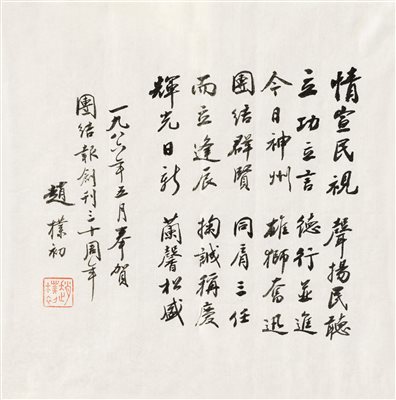 情宣民視 聲揚民聽
立功立言 德行並進
今日神州 雄獅奮迅
團结群賢 同肩三任
而立逢辰 掬誠稱慶
輝光日新 蘭馨松盛
一九八六年五月奉賀
團结報創刊三十周年
趙樸初